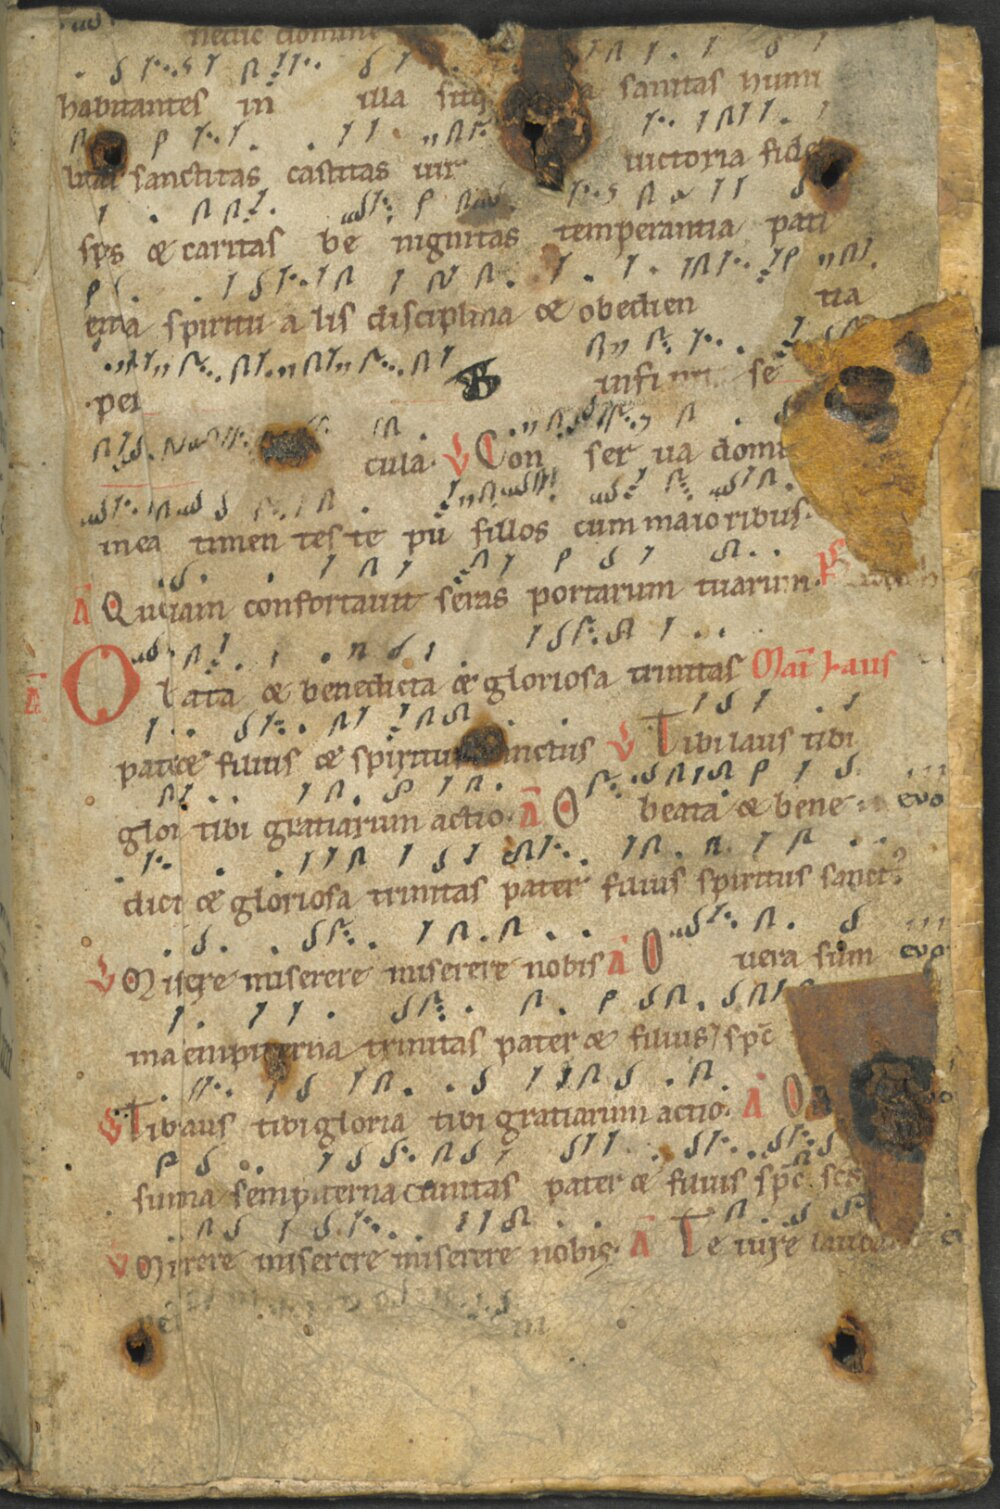 nedic domine
habitantes in illa sitq a sanitas humi
litas sanctitas castitas uir uictoria fide
sps & caritas be nignitas temperantia pati
entia spiritu a lis disciplina & obedien tia
per infi se
cula. V Con ser ua domi
in ea timen tes te pu sillos cum maioribus.
A Quoniam confortauit seras portarum tuarum.
O bata & benedicta & gloriosa trinitas Mai Laus
pater & filius & spiritus sanctus V Tibi laus tibi
glori tibi gratiarum actio. A O beata & bene euo
dict & gloriosa trinitas pater filius spiritus sanct
V Misere miserere miserere nobis A O uera sum euo
ma empiterna trinitas pater & filius spc
V Tib aus tibi gloria tibi gratiarum actio. A O
suma sempiterna trinitas pater & filius spc scs
V Mirere miserere miserere nobis. A Te iure laude